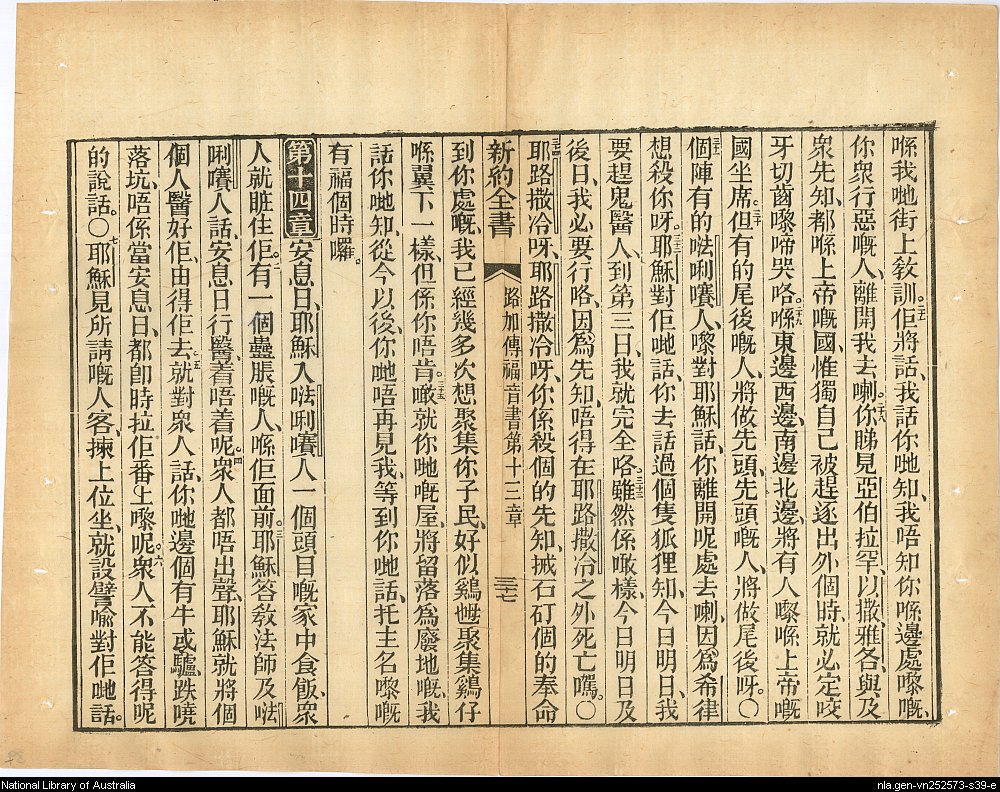 喺我哋街上敎訓。二十七佢將話、我話你哋知、我唔知你喺邊處嚟嘅、
你衆行惡嘅人、離開我去喇。二十八你睇見亞伯拉罕、以撒、雅各、與及
衆先知、都喺上帝嘅國、惟獨自己被趕逐出外個時、就必定咬
牙切齒嚟啼哭咯。二十九喺東邊西邊、南邊北邊、將有人嚟喺上帝嘅
國坐席。三十但有的尾後嘅人、將做先頭、先頭嘅人、將做尾後呀。〇
三十一個陣有的𠵽唎嚽人、嚟對耶穌話、你離開呢處去喇、因爲希律
想殺你呀。三十二耶穌對佢哋話、你去話過個隻狐狸知、今日明日、我
要趕鬼醫人、到第三日、我就完全咯。三十三雖然係噉樣、今日明日及
後日、我必要行咯、因爲先知、唔得在耶路撒冷之外死亡嘅。〇
三十四耶路撒冷呀、耶路撒冷呀、你係殺個的先知、揼石矴個的奉命
新約全書 路加傳福音書第十三章 三十七
到你處嘅、我已經幾多次想聚集你子民、好似鷄𡛥聚集鷄仔
喺翼下一樣、但係你唔肯。三十五噉就你哋嘅屋、將留落爲廢地嘅、我
話你哋知、從今以後、你哋唔再見我、等到你哋話、托主名嚟嘅
有福個時囉。
第十四章 安息日、耶穌入𠵽唎嚽人一個頭目嘅家中食飯、衆
人就睚住佢。二有一個蠱脹嘅人、喺佢面前。三耶穌答敎法師及𠵽
唎嚽人話、安息日行醫、着唔着呢。四衆人都唔出聲、耶穌就將個
個人醫好佢、由得佢去。五就對衆人話、你哋邊個有牛或驢、跌嘵
落坑、唔係當安息日、都卽時拉佢番上嚟呢。六衆人不能答得呢
的說話。〇七耶穌見所請嘅人客、揀上位坐、就設譬喩對佢哋話。
National Library of Australia
nla.gen-vn252573-s39-e